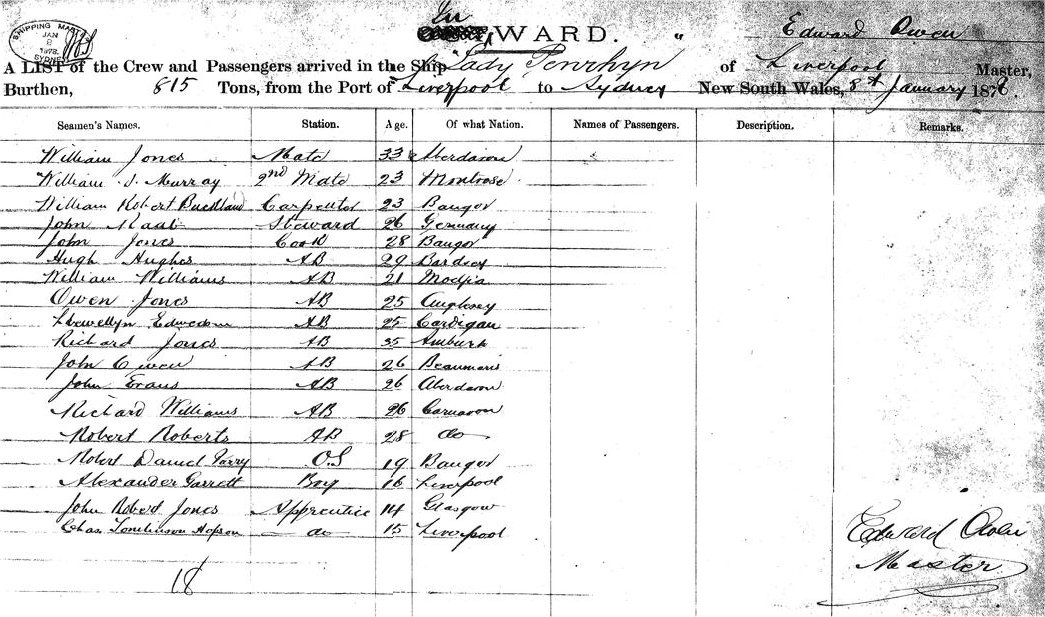 In
WARD.
SHIPPING MASTER
JAN
8
1878
SYDNEY
Edward Owen
A LIST of the Crew and Passengers arrived in the Ship "Lady Penrhyn" of Liverpool Master,
Burthen, 815 Tons, from the Port of Liverpool to Sydney New South Wales, 8th January 1878.
Seamen's Names. Station. Age. Of what Nation. Names of Passengers. Description. Remarks.
William Jones Mate 33 Aberdaron
William J. Murray 2nd Mate 23 Montrose
William Robert Buckland Carpenter 23 Bangor
John Raab Steward 26 Germany
John Jones Cook 28 Bangor
Hugh Hughes AB 29 Bardsey
William Williams AB 21 
Owen Jones AB 25 Anglesey
Llewellyn AB 25 Cardigan
Richard Jones AB 35 
John Owen AB 26 Beaumaris
John Evans AB 26 Aberdaron
Richard Williams AB 26 Carnarvon
Robert Roberts AB 28 do
Robert Daniel Parry O.S 19 Bangor
Alexander Garrett Boy 16 Liverpool
John Robert Jones Apprentice 14 Glasgow
Chas. Tomlinson Hopson do 15 Liverpool
18
Edward Owen
Master